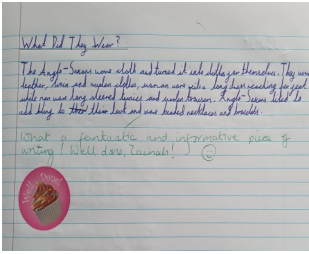 What Did They Wear?
The Anglo-Saxons wore cloth and turned it into clothes for themselves. They wore
leather, linen and woolen clothes, women wore with a long linen reaching her feet
while men wore long sleeved tunics and woolen trousers. Anglo-Saxons liked to
add bling to their and wore beaded necklaces and bracelets.
What a fantastic and informative piece of
writing! Well done, Zainab!
Well Done!